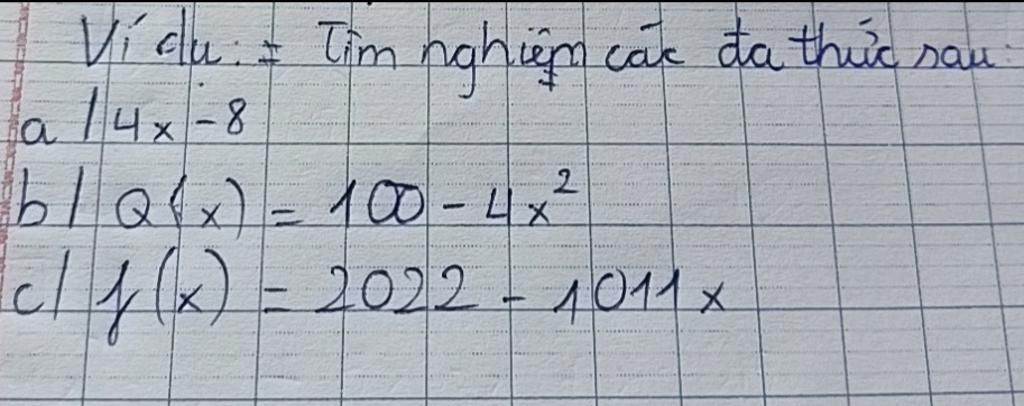 Ví dụ: Tìm nghiệm các đa thức sau:
a/ 4x - 8
b/ Q(x) = 100 - 4x²
c/ f(x) = 2022 - 1011x